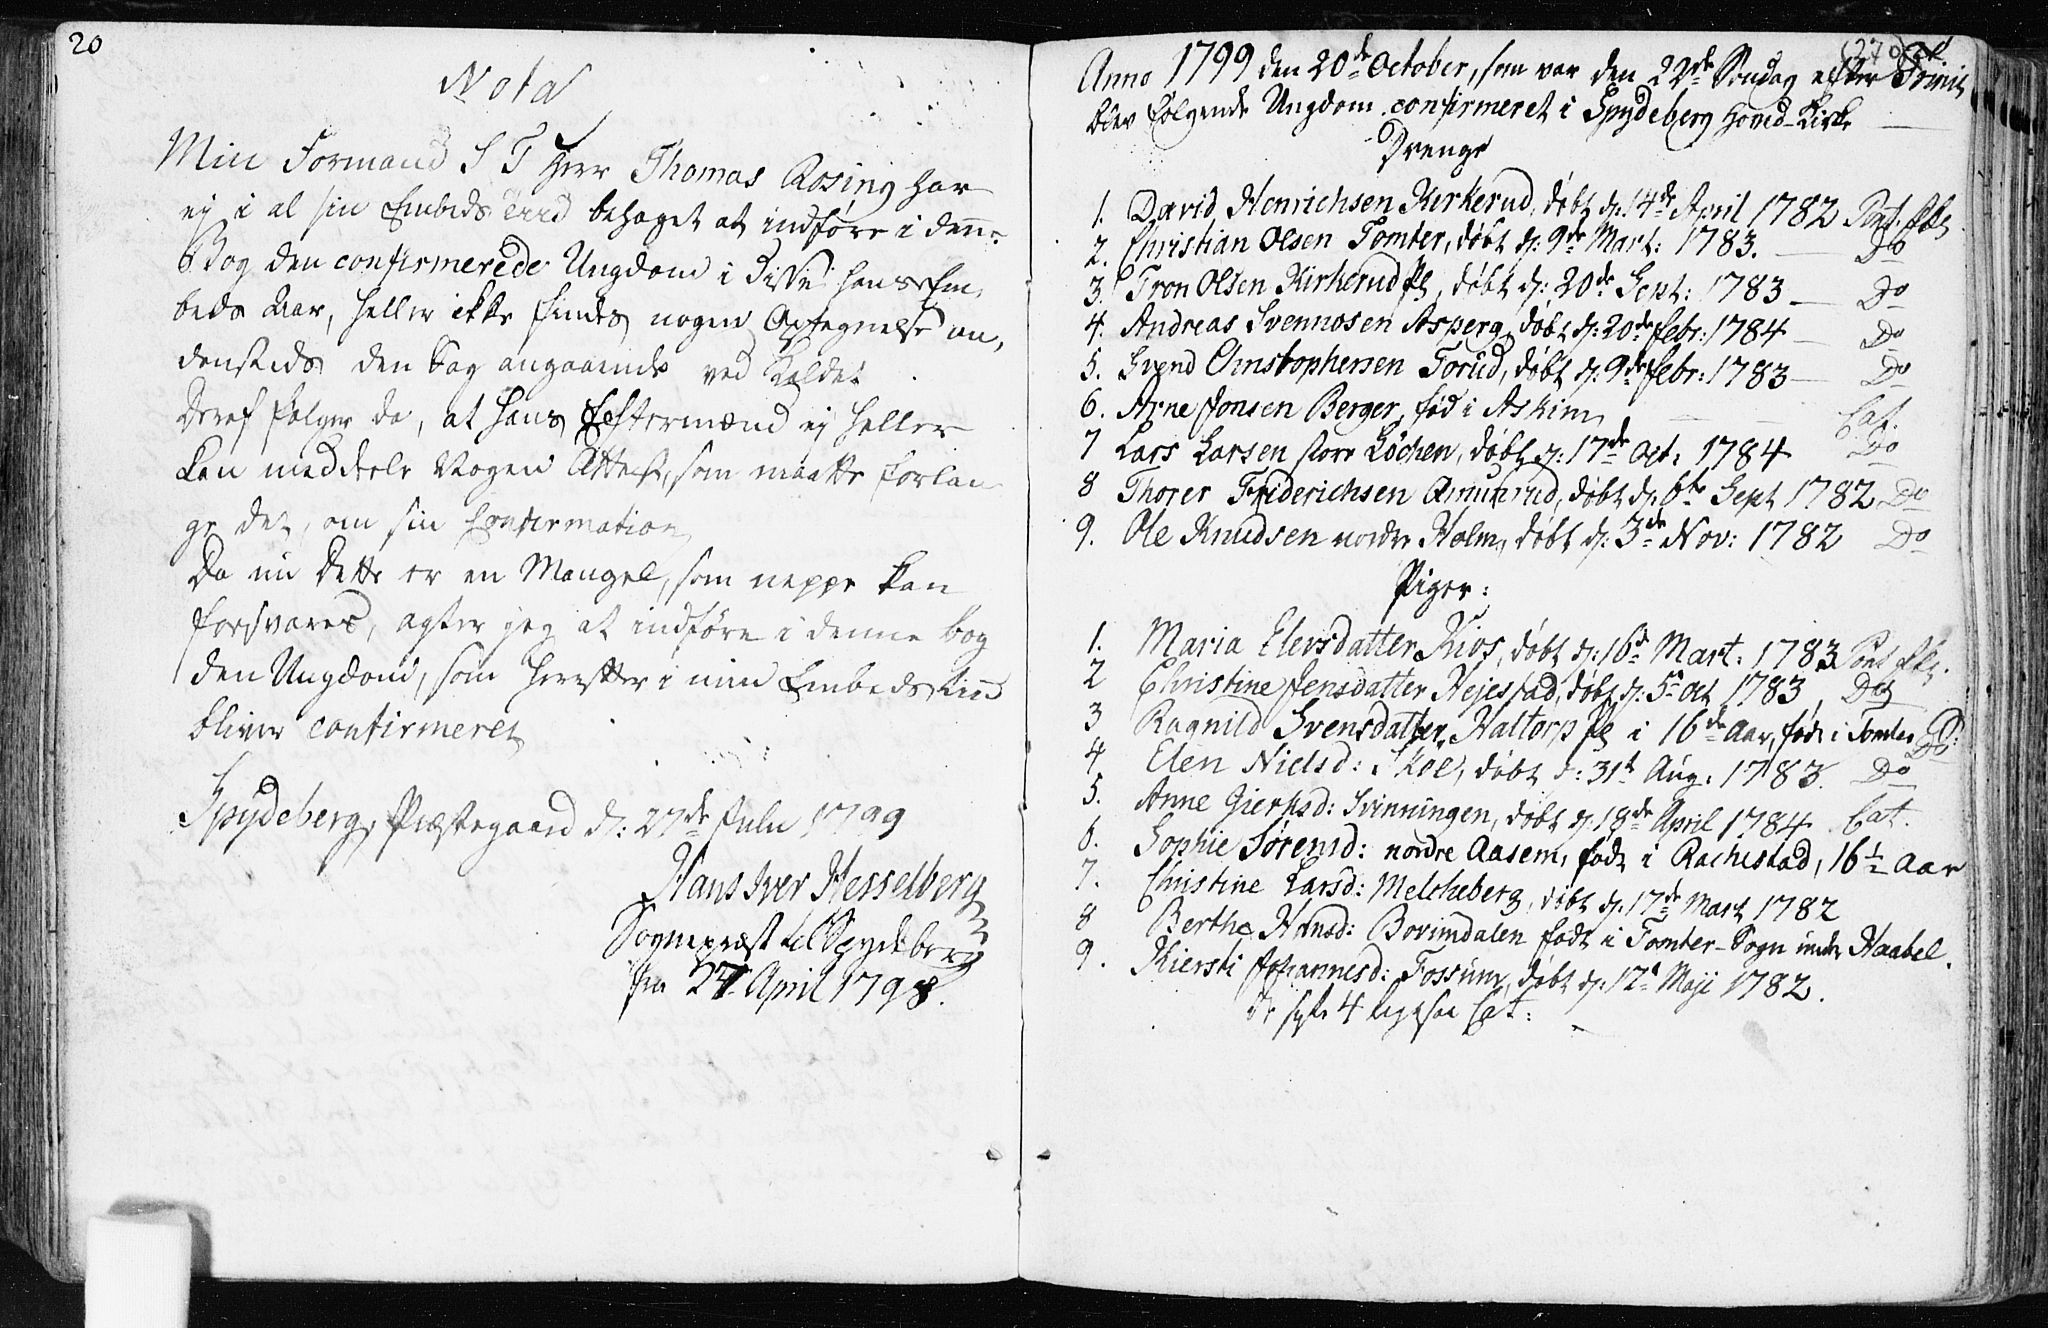 20
Nota
Min Formand S T Herr Thomas Rosing har
ej i al sin Embeds Tiid behaget at indføre i denne
Bog den confirmerede Ungdom i disse hans Em,
beds Aar, heller ikke findes nogen Optegnelse an,
densteds den Sag angaaende ved Kaldet
Deraf følger da, at hans Eftermænd ej heller
kan meddeele Nogen Attest, som maatte forlan
ge det, om sin Confirmation
Da nu dette er en Mangel, som neppe kan
forsvares, agter jeg at indføre i denne bog
den Ungdom, som herefter i min Embeds tiid
bliver confirmeret
Spydeberg Præstegaard d: 27de Julii 1799
Hans Iver Hesselberg
Sognepræst til Spydeberg
fra 27 April 1798.
(270)
Anno 1799 den 20de October, som var den 22de Søndag efter Trinit
blev følgende Ungdom confirmeret i Spydeberg Hoved-Kirke
Drenge
1. David Henrichsen Kerkerud, døbt d: 14de April 1782 Pont. Fkl.
2. Christian Olsen Tomter, døbt d: 9de Mart: 1783. Do
3. Tron Olsen Kirkerud Pl, døbt d: 20de Sept: 1783 Do
4. Andreas Svennosen Asperg, døbt d: 20de febr: 1784 Do
5. Svend Christophersen Torud, døbt d: 9de febr: 1783 Do
6. Arne Jonsen Berger, fød i Askim Cat.
7 Lars Larsen store Løchen, døbt d: 17de Oct: 1784 Do
8 Thorer Friderichsen Amunrud, døbt d: 6te Sept 1782 Do
9. Ole Knudsen nordre Holm, døbt d: 3de Nov: 1782 Do
Piger:
1. Maria Elevsdatter Kios, døbt d: 16de Mart: 1783 Pont Fkl.
2 Christine Jensdatter Hejestad, døbt d: 5te Oct 1783, Do
3 Ragnild Svensdatter Haltorp Pl i 16de Aar, født i Tomter Do
4 Elen Nielsd: Skoe, døbt d: 31t Aug: 1783. Do
5. Anne Gierhsd: Svinningen, døbt d: 18de April 1784 Cat.
6. Sophie Sørensd: nordre Aasem, født i Rachestad, 16½ Aar
7. Christine Larsd: Melcheberg, døbt d: 17de Mart 1782
8 Berthe Hansd: Bovimdalen født i Tomter-Sogn under Haabel.
9. Kiersti Johannesd: Fossum, døbt d: 12te Maji 1782.
de sidste 4 ligesaa Cat: